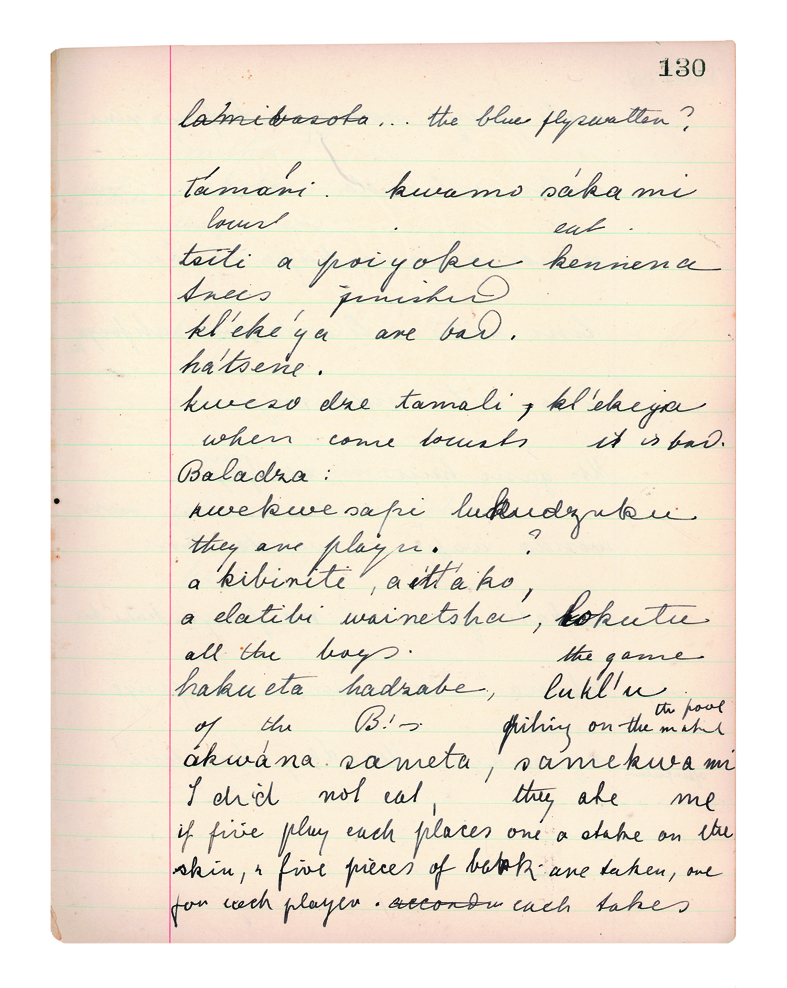 130
lamibasota ... the blue flyswatten?
támáni. kwamo sákami
locust eat
tsiti a poiyoku kennena
trees finished
kl'eke'ya are bad.
ha'tsene.
kweso dze tamali, kl'ekeya
when come locusts it is bad.
Baladza:
nwekwe sapi lukudzuku
they are playn. ?
a kibiriti, aittáko,
a elatibi wainetsha, lokutu
all the boys. the game
hakueta hadzabe, lukl'u
of the B!-s on the the pool
ákwána sameta, samekwami
I did not eat, they ate me
if five play each places one a stake on the
skin, & five pieces of bark are taken, one
for each player. accordin each takes